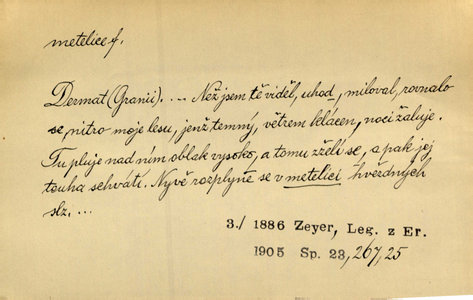 metelice f.
Dermat (Granii). ... Než jsem tě viděl, uhod, miloval, rovnalo
se nitro moje lesu, jenž temný, větrem klácen, noci žaluje.
Tu pluje nad ním oblak vysoko, a tomu zželí se, a pak jej
touha schvátí. Nyvě rozplyne se v metelici hvězdných
slz. ...
3./ 1886 Zeyer, Leg. z Er.
1905 Sp. 23, 267, 25